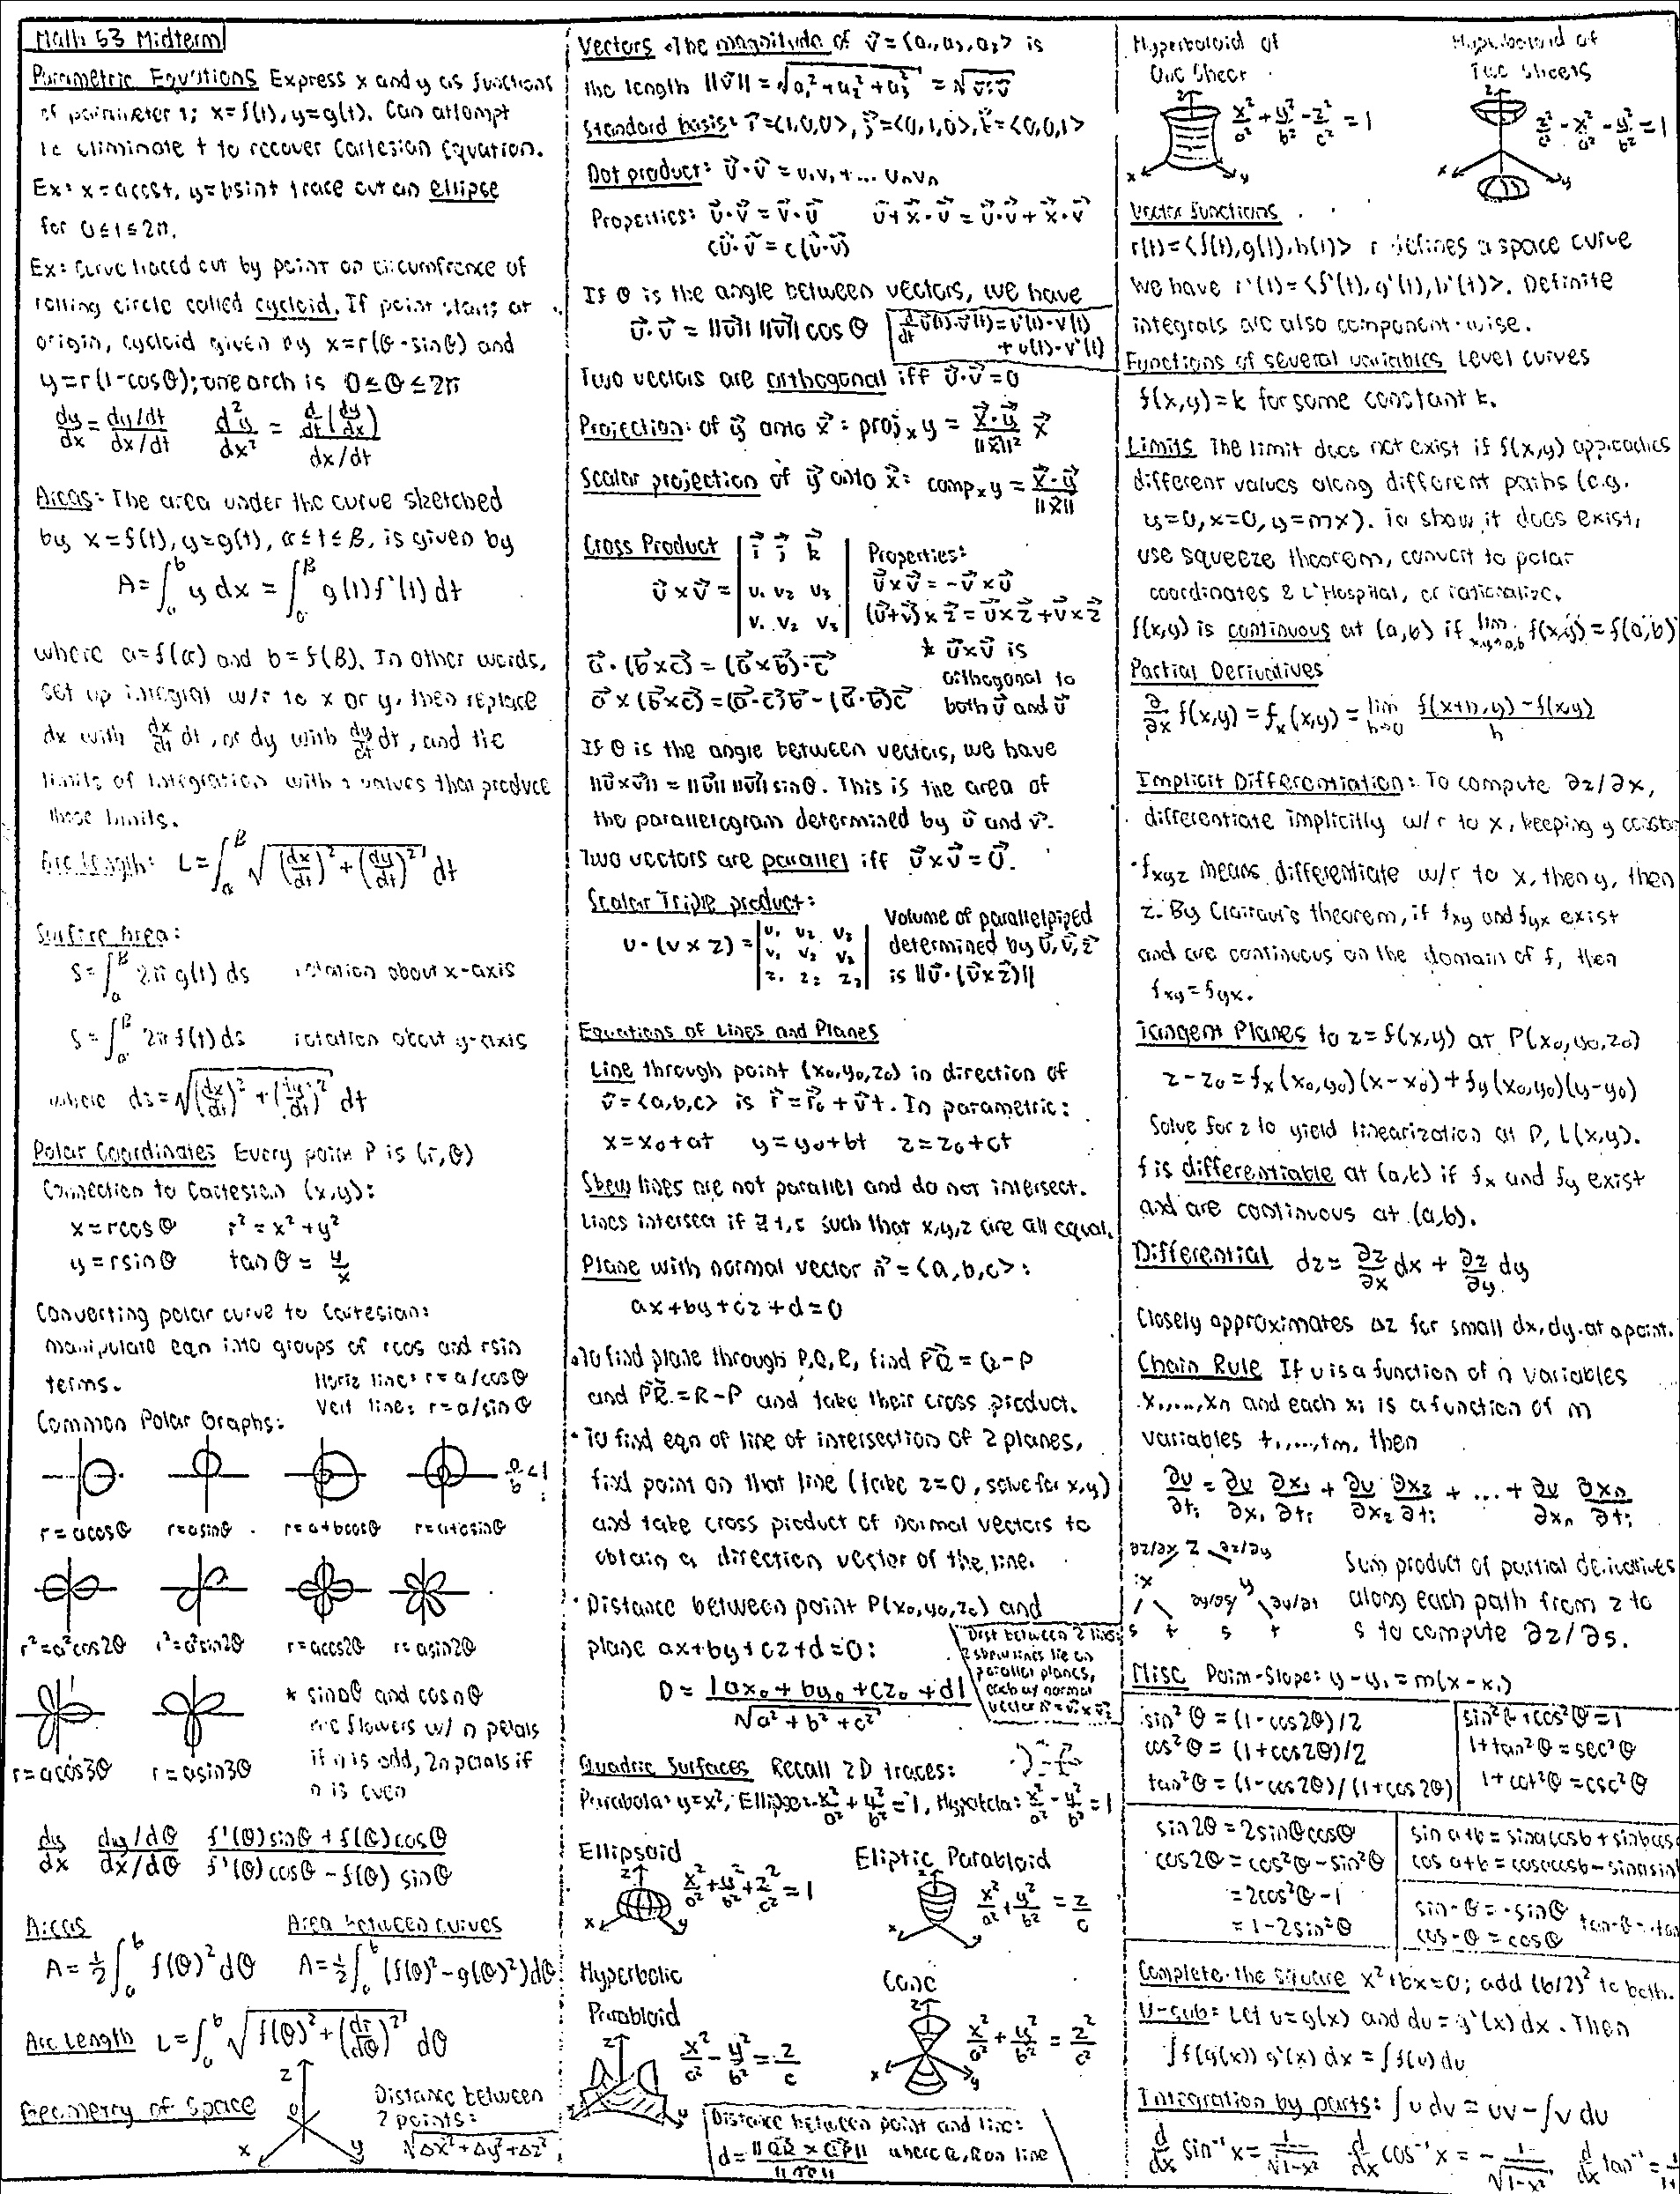 Math 53 Midterm
Parametric Equations Express x and y as functions
of parameter t; x=f(t), y=g(t). Can attempt
to eliminate t to recover Cartesian Equation.
Ex: x=acost, y=bsint trace out an ellipse
for 0≤t≤2π.
Ex: Curve traced out by point on circumfrence of
rolling circle called cycloid. If point starts at
origin, cycloid given by x=r(θ-sinθ) and
y=r(1-cosθ); one arch is 0≤θ≤2π
dy/dx = (dy/dt)/(dx/dt)   d²y/dx² = (d/dt(dy/dx))/(dx/dt)
Areas: The area under the curve sketched
by x=f(t), y=g(t), α≤t≤β, is given by
A=∫_a^b y dx = ∫_α^β g(t)f'(t)dt
where a=f(α) and b=f(β). In other words,
set up integral w/r to x or y, then replace
dx with dx/dt dt, or dy with dy/dt dt, and the
limits of integration with t values that produce
those limits.
Arc Length: L=∫_α^β √((dx/dt)²+(dy/dt)²) dt
Surface Area:
S=∫_α^β 2π g(t) ds   rotation about x-axis
S=∫_α^β 2π f(t) ds   rotation about y-axis
where ds=√((dx/dt)²+(dy/dt)²) dt
Polar Coordinates Every point P is (r,θ)
Connection to Cartesian (x,y):
x=rcosθ   r²=x²+y²
y=rsinθ   tanθ=y/x
Converting polar curve to Cartesian:
manipulate eqn into groups of rcos and rsin
terms.
Horiz line: r=a/cosθ
Vert line: r=a/sinθ
Common Polar Graphs:
a/b<1
r=acosθ   r=asinθ   r=a+bcosθ   r=a+bsinθ
r²=a²cos2θ   r²=a²sin2θ   r=acos2θ   r=asin2θ
* sinnθ and cosnθ
are flowers w/ n petals
if n is odd, 2n petals if
n is even
r=acos3θ   r=asin3θ
dy/dx   (dy/dθ)/(dx/dθ)   (f'(θ)sinθ+f(θ)cosθ)/(f'(θ)cosθ-f(θ)sinθ)
Areas   Area between curves
A=½∫_a^b f(θ)²dθ   A=½∫_a^b (f(θ)²-g(θ)²)dθ
Arc Length L=∫_a^b √(f(θ)²+(dr/dθ)²) dθ
Geometry of Space
z
0
x y
Distance between
2 points:
√(Δx²+Δy²+Δz²)
Vectors • The magnitude of v⃗=<a₁,a₂,a₃> is
the length ||v⃗||=√(a₁²+a₂²+a₃²)=√(v⃗·v⃗)
Standard basis: i⃗=<1,0,0>, j⃗=<0,1,0>, k⃗=<0,0,1>
Dot product: u⃗·v⃗=u₁v₁+...uₙvₙ
Properties: u⃗·v⃗=v⃗·u⃗   u⃗+x⃗·v⃗=u⃗·v⃗+x⃗·v⃗
cu⃗·v⃗=c(u⃗·v⃗)
If θ is the angle between vectors, we have
u⃗·v⃗=||u⃗|| ||v⃗||cosθ
d/dt u⃗(t)·v⃗(t)=u'(t)·v(t)
+u(t)·v'(t)
Two vectors are orthogonal iff u⃗·v⃗=0
Projection: of y⃗ onto x⃗: projₓy=(x⃗·y⃗)/||x⃗||² x⃗
Scalar projection of y⃗ onto x⃗: compₓy=(x⃗·y⃗)/||x⃗||
Cross Product
u⃗×v⃗=|i⃗ j⃗ k⃗
u₁ u₂ u₃
v₁ v₂ v₃|
Properties:
u⃗×v⃗=-v⃗×u⃗
(u⃗+v⃗)×z⃗=u⃗×z⃗+v⃗×z⃗
* u⃗×v⃗ is
orthogonal to
both u⃗ and v⃗
a⃗·(b⃗×c⃗)=(a⃗×b⃗)·c⃗
a⃗×(b⃗×c⃗)=(a⃗·c⃗)b⃗-(a⃗·b⃗)c⃗
If θ is the angle between vectors, we have
||u⃗×v⃗||=||u⃗|| ||v⃗||sinθ. This is the area of
the parallelogram determined by u⃗ and v⃗.
Two vectors are parallel iff u⃗×v⃗=0⃗.
Scalar Triple product:
u·(v×z)=|u₁ u₂ u₃
v₁ v₂ v₃
z₁ z₂ z₃|
Volume of parallelpiped
determined by u⃗,v⃗,z⃗
is ||u⃗·(v⃗×z⃗)||
Equations of Lines and Planes
Line through point (x₀,y₀,z₀) in direction of
v⃗=<a,b,c> is r⃗=r⃗₀+v⃗t. In parametric:
x=x₀+at   y=y₀+bt   z=z₀+ct
Skew lines are not parallel and do not intersect.
Lines intersect if ∃ t,s such that x,y,z are all equal.
Plane with normal vector n⃗=<a,b,c>:
ax+by+cz+d=0
• To find plane through P,Q,R, find PQ⃗=Q-P
and PR⃗=R-P and take their cross product.
• To find eqn of line of intersection of 2 planes,
find point on that line (take z=0, solve for x,y)
and take cross product of normal vectors to
obtain a direction vector of the line.
• Distance between point P(x₀,y₀,z₀) and
plane ax+by+cz+d=0:
D=|ax₀+by₀+cz₀+d|/√(a²+b²+c²)
Dist between 2 lines:
2 skew lines lie on
parallel planes,
each w/ normal
vector n⃗=v⃗₁×v⃗₂
Quadric Surfaces Recall 2D traces:
Parabola: y=x², Ellipse: x²/a²+y²/b²=1, Hyperbola: x²/a²-y²/b²=1
Ellipsoid   Eliptic Parabloid
z x y
x²/a²+y²/b²+z²/c²=1   x²/a²+y²/b²=z/c
Hyperbolic   Cone
Parabloid
x²/a²-y²/b²=z/c   x²/a²+y²/b²=z²/c²
Distance between point and line:
d=||QR⃗×QP⃗||/||QR|| where Q,R on line
Hyperboloid of   Hyperboloid of
One Sheet   Two Sheets
x²/a²+y²/b²-z²/c²=1   z²/c²-x²/a²-y²/b²=1
Vector Functions
r(t)=<f(t),g(t),h(t)> r defines a space curve
We have r'(t)=<f'(t),g'(t),h'(t)>. Definite
integrals are also component-wise.
Functions of several variables Level curves
f(x,y)=k for some constant k.
Limits The limit does not exist if f(x,y) approaches
different values along different paths (e.g.
y=0, x=0, y=mx). To show it does exist,
use squeeze theorem, convert to polar
coordinates & L'Hospital, or rationalize.
f(x,y) is continuous at (a,b) if lim x,y→a,b f(x,y)=f(a,b)
Partial Derivatives
∂/∂x f(x,y)=fₓ(x,y)=lim h→0 (f(x+h,y)-f(x,y))/h
Implicit Differentiation: To compute ∂z/∂x,
differentiate implicitly w/r to x, keeping y consta
• f_xyz means differentiate w/r to x, then y, then
z. By Clairaut's theorem, if f_xy and f_yx exist
and are continuous on the domain of f, then
f_xy=f_yx.
Tangent Planes to z=f(x,y) at P(x₀,y₀,z₀)
z-z₀=fₓ(x₀,y₀)(x-x₀)+f_y(x₀,y₀)(y-y₀)
Solve for z to yield linearization at P, L(x,y).
f is differentiable at (a,b) if fₓ and f_y exist
and are continuous at (a,b).
Differential dz=∂z/∂x dx+∂z/∂y dy
Closely approximates Δz for small dx,dy at a point.
Chain Rule If u is a function of n variables
x₁,...,xₙ and each xᵢ is a function of m
variables t₁,...,tₘ, then
∂u/∂tᵢ=∂u/∂x₁ ∂x₁/∂tᵢ+∂u/∂x₂ ∂x₂/∂tᵢ+...+∂u/∂xₙ ∂xₙ/∂tᵢ
∂z/∂x z ∂z/∂y
x y
s t s t
Sum product of partial derivatives
along each path from z to
s to compute ∂z/∂s.
Misc Point-Slope: y-y₁=m(x-x₁)
sin²θ=(1-cos2θ)/2
cos²θ=(1+cos2θ)/2
tan²θ=(1-cos2θ)/(1+cos2θ)
sin²θ+cos²θ=1
1+tan²θ=sec²θ
1+cot²θ=csc²θ
sin2θ=2sinθcosθ
cos2θ=cos²θ-sin²θ
=2cos²θ-1
=1-2sin²θ
sin a+b=sinacosb+sinbcos
cos a+b=cosacosb-sinasin
sin-θ=-sinθ
cos-θ=cosθ
tan-θ=-ta
Complete the square x²+bx=0; add (b/2)² to both.
U-sub: Let u=g(x) and du=g'(x)dx. Then
∫f(g(x))g'(x)dx=∫f(u)du
Integration by parts: ∫u dv=uv-∫v du
d/dx sin⁻¹x=1/√(1-x²)   d/dx cos⁻¹x=-1/√(1-x²)   d/dx tan⁻¹=